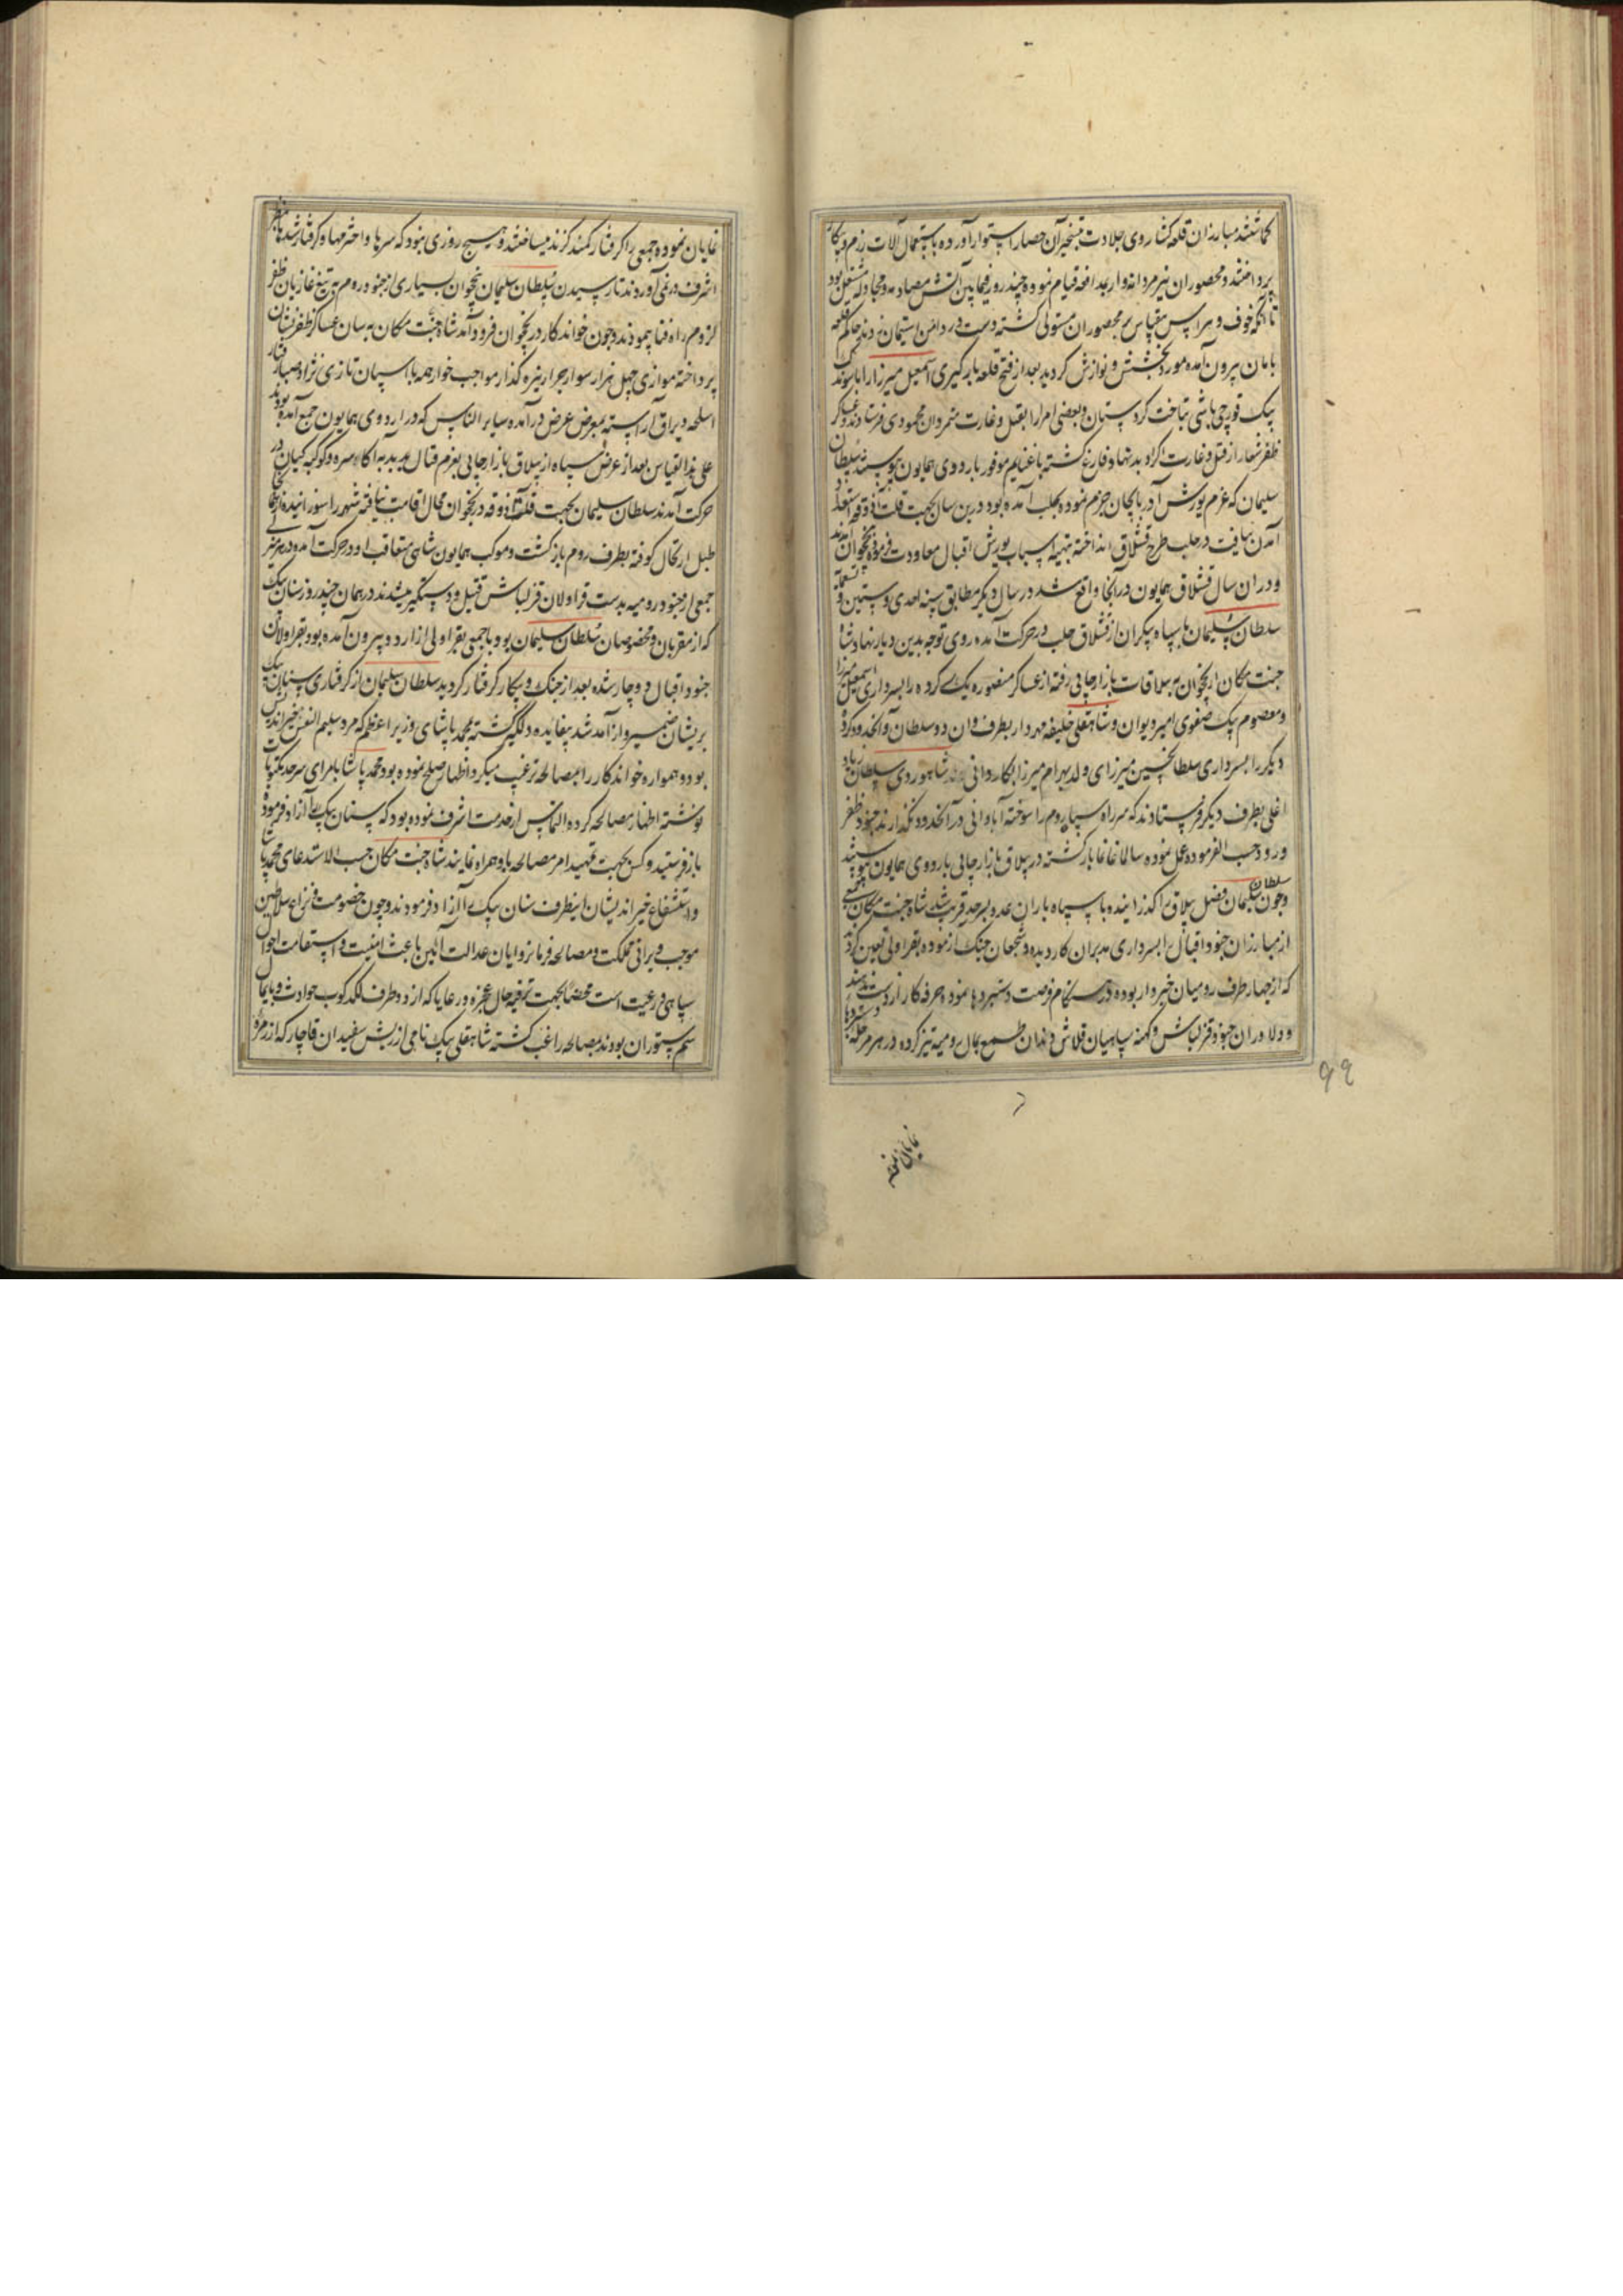 گماشتند مبارزان قلعه کشا روی جلادت بتسخیر آن حصار استوار آورده باستعمال آلات رزم و پیکار
پرداختند و محصوران نیز مردانه وار بمدافعه قیام نموده چند روز فیمابین آتش مصادمه و مجادله مشتعل بود
تا آنکه خوف و هراس بیقیاس بر محصوران مستولی کشته دست در دامن استیمان زدند حاکم قلعه
بامان بیرون آمده مورد بخشش و نوازش کردید بعد از فتح قلعه بارکیری اسمعیل میرزا را با سوندک
بیک قورچی باشی بتاخت کردستان و بعضی امرا را بقتل و غارت محمودی فرستادند و عساکر
ظفر شعار از قتل و غارت اکراد بدنهاد فارغ کشته با غنایم موفور باردوی همایون پیوستند سلطان
سلیمان که عزم یورش آذربایجان جزم نموده بحلب آمده بود درین سال بجهت قلت آذوقه استعداد
آمدن نیافت در حلب طرح قشلاق انداخته بتهیه اسباب یورش اقبال معاودت فرموده بنخجوان آمدند
و در ان سال قشلاق همایون در آنجا واقع شد در سال دیکر مطابق سنه احدی و ستین و تسعمایه
سلطان سلیمان با سپاه بیکران از قشلاق حلب در حرکت آمده روی توجه بدین دیار نهاد شاه
جنت مکان از نخجوان به ییلاقات بازارچایی رفته از عساکر منصوره یک کرده را بسرداری اسمعیل میرزا
و معصوم بیک صفوی امیر دیوان و شاهقلی خلیفه مهردار بطرف وان و سلطان و انحدود کروه
دیکر را بسرداری سلطان حسین میرزای ولد بهرام میرزا بکاردانی شاهوردی سلطان زیاد
اغلی بطرف دیکر فرستادند که سر راه سپاه روم را سوخته آبادانی در آنحدود نکذارند جنود ظفر
ورود حسب الفرموده عمل نموده سالما غانما بازکشته در ییلاق بازارچایی باردوی همایون پیوستند
و چون سلطان سلیمان فصل ییلاق را کذرانیده با سپاه باران عدد بسرحد قریب شد شاه جنت مکان جمعی
از مبارزان جنود اقبال را بسرداری مدبران کار دیده و شجعان جنک آزموده بقراولی تعین کردند
که از چهار طرف رومیان خبردار بوده در هنکام فرصت دستبردها نموده صرفه کار از دست ندهند
و دلاوران جنود قزلباش و کهنه سپاهیان قلاش دندان طمع بمال رومیه تیز کرده در هر مرحله دستبردها
نمایان نموده
۹۹
نمایان نموده جمعی را کرفتار کمند کزند میساختند و هیچ روزی نبود که سرها و اخترمها و کرفتار شدها بنظر
اشرف در نمی آوردند تا رسیدن سلطان سلیمان بنخجوان بسیاری از جنود روم به تیغ غازیان ظفر
لزوم راه فنا پیمودند و چون خواندکار در نخجوان فرود آمد شاه جنت مکان به سان عساکر ظفر نشان
پرداخته موازی چهل هزار سوار جرار نیزه کذار مواجب خوار همه با اسپان تازی نژاد صبا رفتار
اسلحه و یراق آراسته بمعرض عرض درآمده سایر الناس که در اردوی همایون جمع آمده بودند
علی هذا القیاس بعد از عرض سپاه از ییلاق بازارچایی بعزم قتال بدبدبه اکاسره و کوکبه کیان در
حرکت آمدند سلطان سلیمان بجهت قلت آذوقه در نخجوان مجال اقامت نیافته شهر را سوزانیده از آنجا
طبل ارتحال کوفته بطرف روم بازکشت و موکب همایون شاهی متعاقب او در حرکت آمده در هر منزلی
جمعی از جنود رومیه بدست قراولان قزلباش قتیل و دستکیر میشدند در همان چند روز سنان بیک
که از مقربان و مخصوصان سلطان سلیمان بود با جمعی بقراولی از اردو بیرون آمده بود بقراولان
جنود اقبال دوچار شده بعد از جنک و پیکار کرفتار کردید سلطان سلیمان از کرفتاری سنان بیک
پریشان ضمیر و از آمدشد بیفایده دلکیر کشته محمد پاشای وزیر اعظم که مرد سلیم النفس خیراندیش
بود و همواره خواندکار را بمصالحه ترغیب میکرد اظهار صلح نموده بود محمد پاشا بامرای سرحد مکتوبات
نوشته اظهار مصالحه کرده التماس از خدمت اشرف نموده بود که سنان بیک را آزاد فرموده
بازفرستید و کس بجهت تمهید امر مصالحه با و همراه نمایند شاه جنت مکان حسب الاستدعای محمد پاشا
و استشفاع خیراندیشان اینطرف سنان بیک را آزاد فرمودند و چون خصومت و نزاع سلاطین
موجب ویرانی مملکت و مصالحه فرمانروایان عدالت آئین باعث امنیت و استقامت احوال
سپاهی و رعیت است محضا بجهت ترفیه حال عجزه و رعایا که از دو طرف لکدکوب حوادث و پایمال
سم ستوران بودند بمصالحه راغب کشته شاهقلی بیک نامی از ریش سفیدان قاجار که از زمره